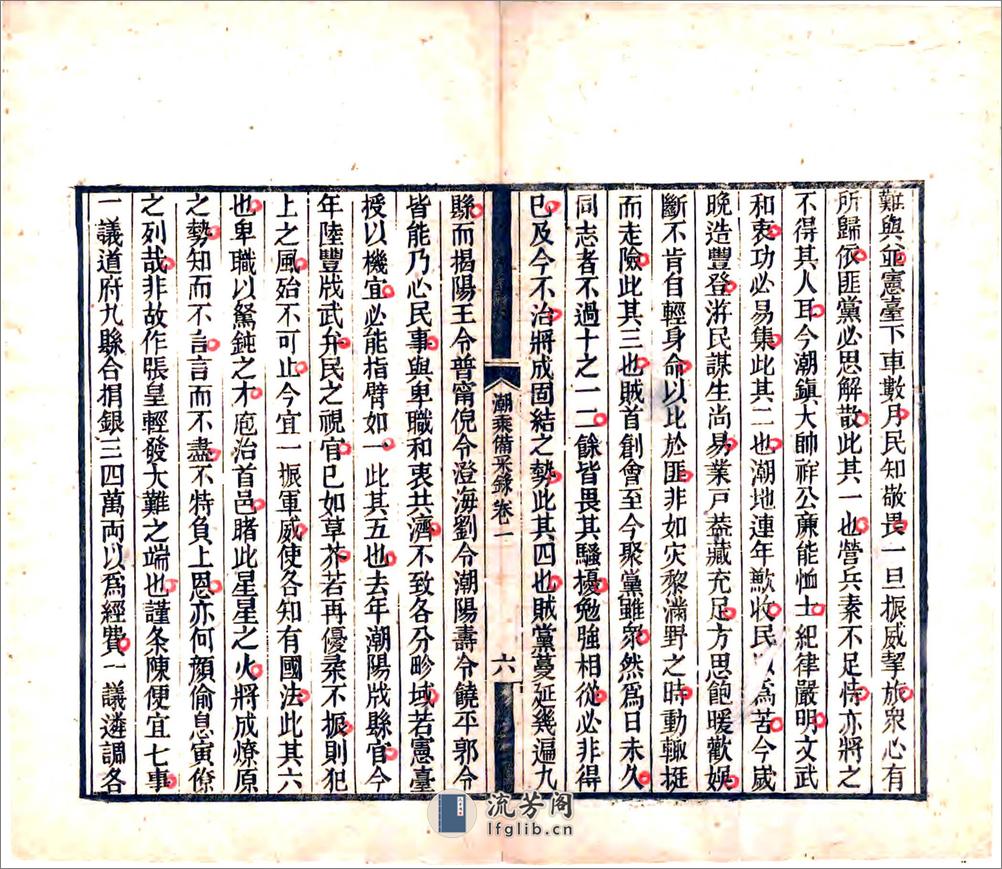 難與並憲臺下車數月民知敬畏一旦振威挈旅衆心有
所歸依匪黨必思解散此其一也營兵素不足恃亦將之
不得其人耳今潮鎮大帥祥公亷能恤士紀律嚴明文武
和衷功必易集此其二也潮地連年歉收民以爲苦今歲
晚造豐登游民謀生尚易業戸葢藏充足方思飽暖歡娯
斷不肯自輕身命以此於匪非如灾黎滿野之時動輙挺
而走險此其三也賊首創會至今聚黨雖衆然爲日未久
同志者不過十之一二餘皆畏其騷擾勉強相從必非得
已及今不治將成固結之勢此其四也賊黨蔓延幾遍九
潮乘備采錄 卷一
六
縣而揭陽王令普甯倪令澄海劉令潮陽壽令饒平郭令
皆能乃心民事與卑職和衷共濟不致各分畛域若憲臺
授以機宜必能指臂如一此其五也去年潮陽戕縣官今
年陸豐戕武弁民之視官已如草芥若再優柔不振則犯
上之風殆不可止今宜一振軍威使各知有國法此其六
也卑職以駑鈍之才庖治首邑睹此星星之火將成燎原
之勢知而不言言而不盡不特負上恩亦何顔偷息寅僚
之列哉非故作張皇輕發大難之端也謹条陳便宜七事
一議道府九縣合捐銀三四萬両以爲經費一議遴調各
流芳阁
lfglib.cn